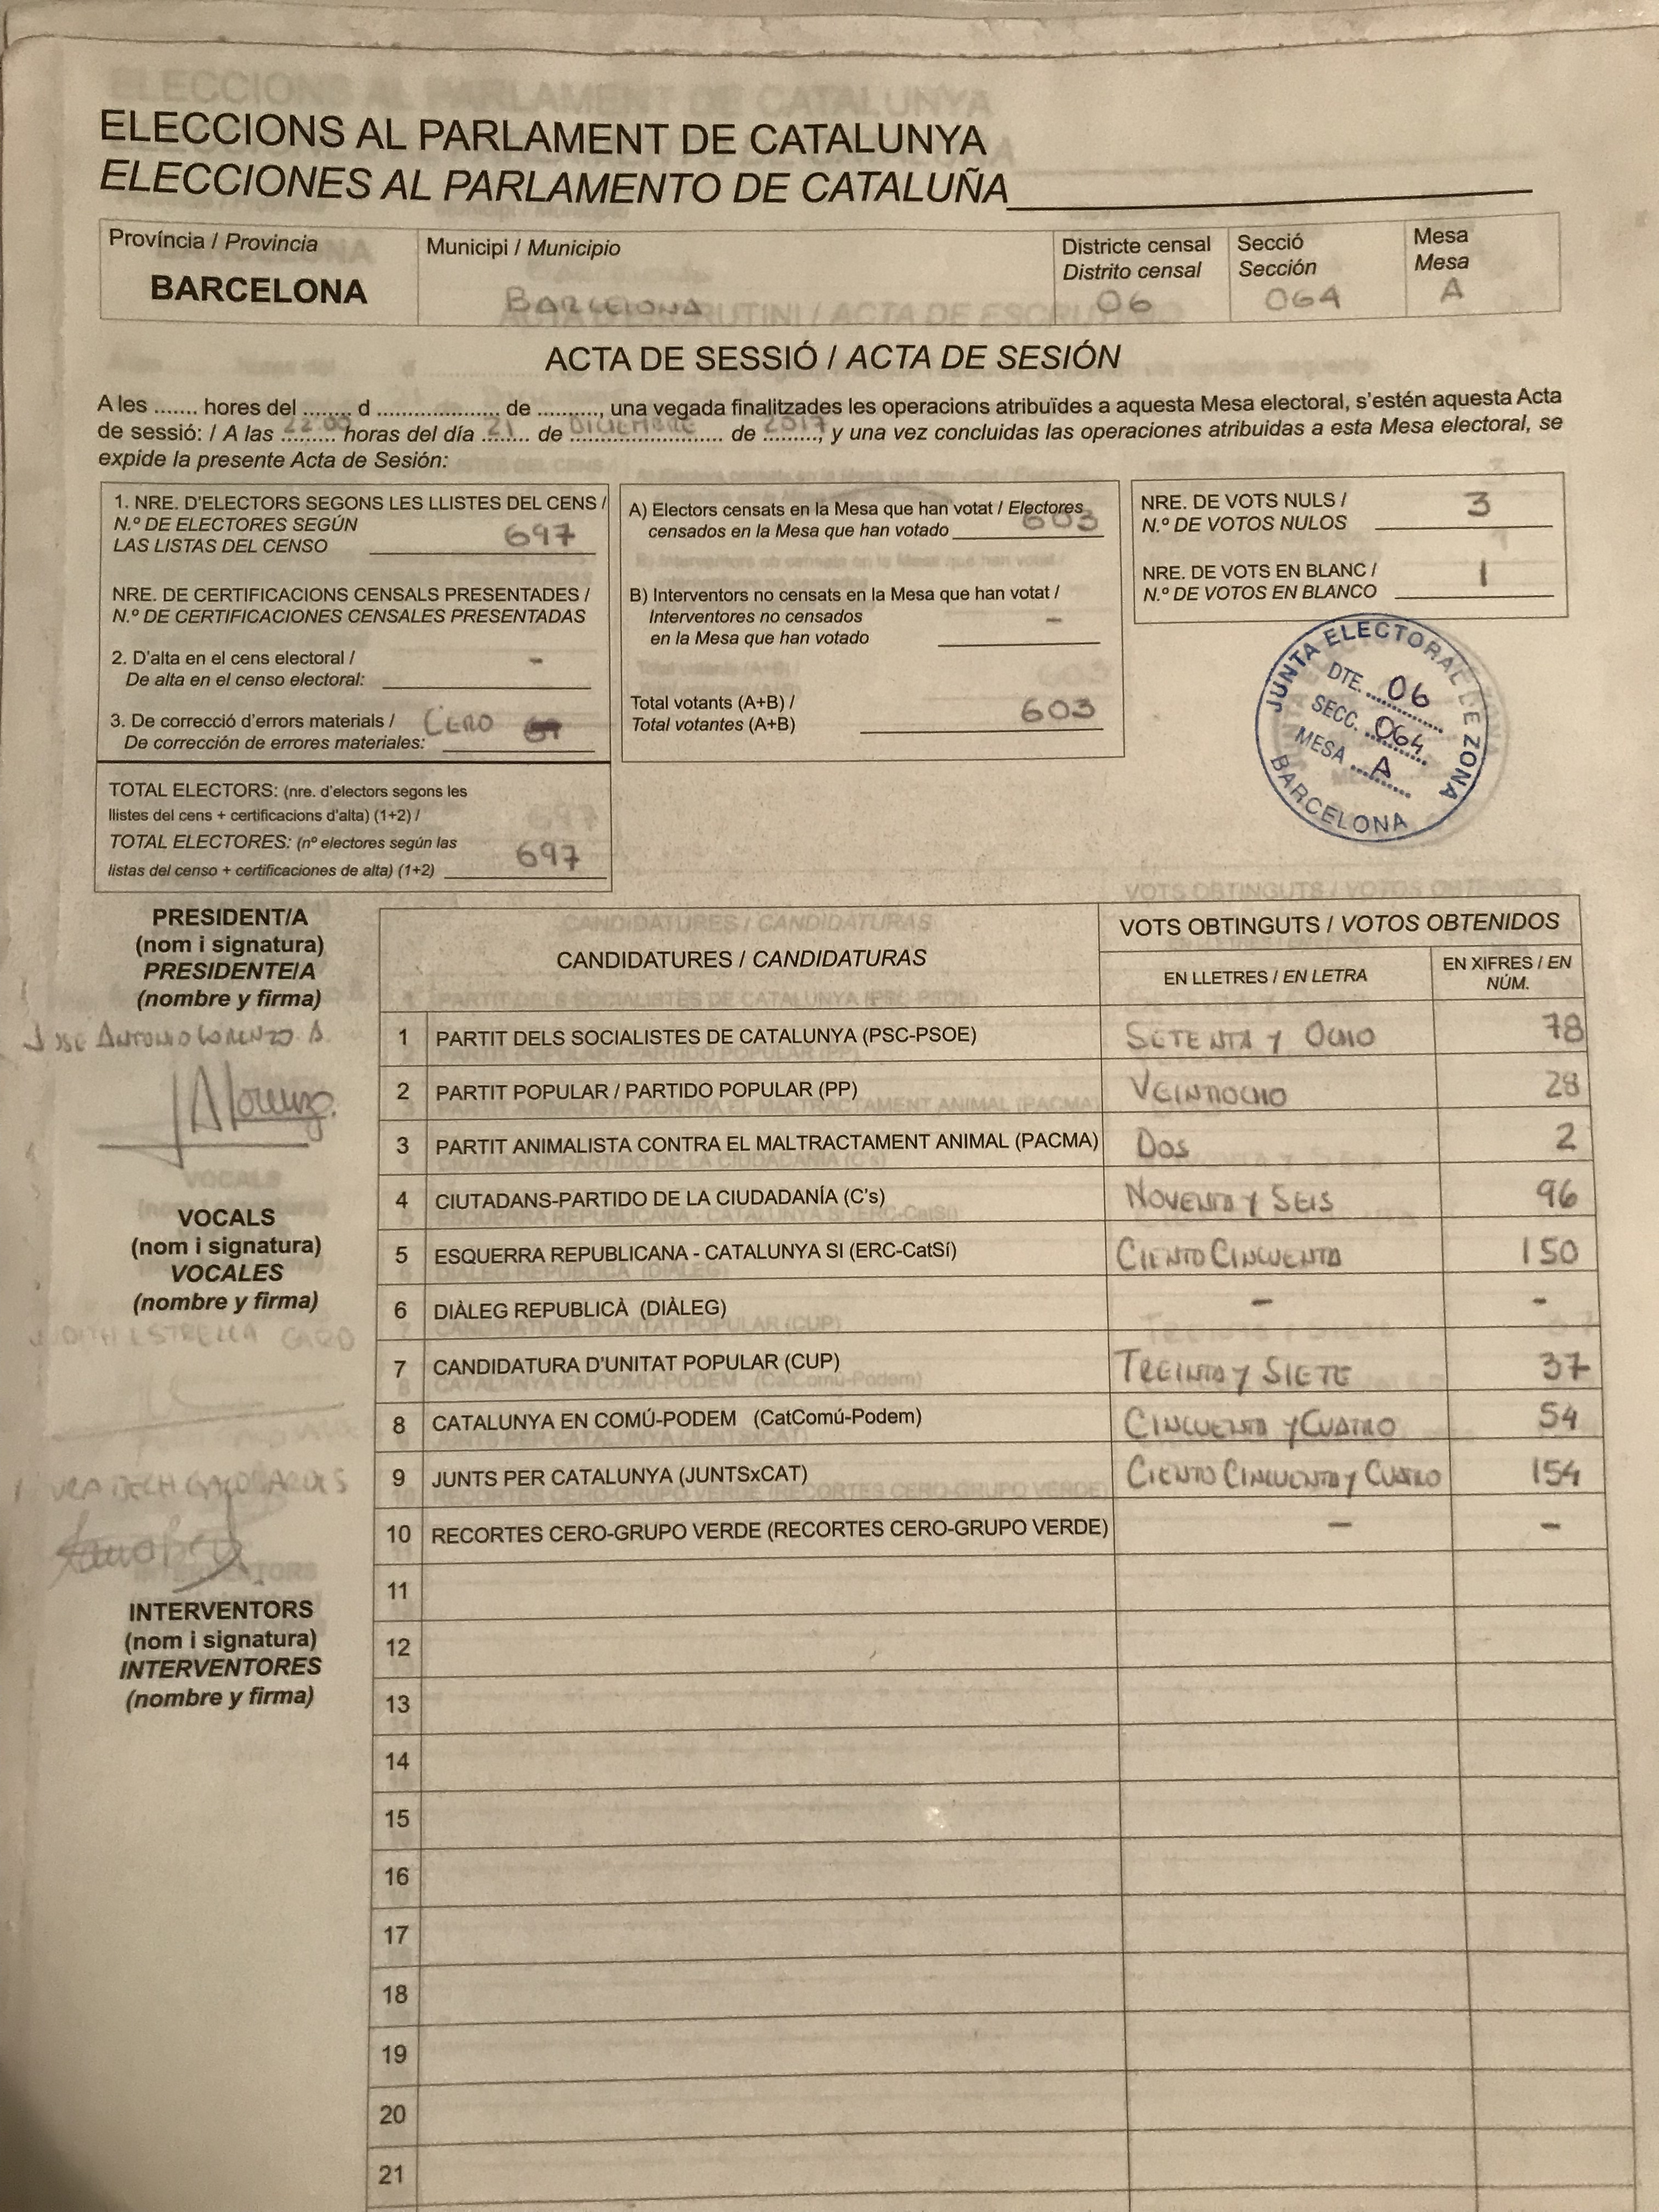 ELECCIONS AL PARLAMENT DE CATALUNYA
ELECCIONES AL PARLAMENTO DE CATALUÑA
Província / Provincia
BARCELONA
Municipi / Municipio
BARCELONA
Districte censal
Distrito censal
06
Secció
Sección
064
Mesa
Mesa
A
ACTA DE SESSIÓ / ACTA DE SESIÓN
A les ....... hores del ........ d .................... de .........., una vegada finalitzades les operacions atribuïdes a aquesta Mesa electoral, s'estén aquesta Acta
de sessió: / A las 22:00 horas del día 21 de DICIEMBRE de 2017, y una vez concluidas las operaciones atribuidas a esta Mesa electoral, se
expide la presente Acta de Sesión:
1. NRE. D'ELECTORS SEGONS LES LLISTES DEL CENS /
N.º DE ELECTORES SEGÚN
LAS LISTAS DEL CENSO 697
NRE. DE CERTIFICACIONS CENSALS PRESENTADES /
N.º DE CERTIFICACIONES CENSALES PRESENTADAS
2. D'alta en el cens electoral /
De alta en el censo electoral: -
3. De correcció d'errors materials / CERO
De corrección de errores materiales:
TOTAL ELECTORS: (nre. d'electors segons les
llistes del cens + certificacions d'alta) (1+2) /
TOTAL ELECTORES: (nº electores según las
listas del censo + certificaciones de alta) (1+2) 697
A) Electors censats en la Mesa que han votat / Electores
censados en la Mesa que han votado 603
B) Interventors no censats en la Mesa que han votat /
Interventores no censados
en la Mesa que han votado -
Total votants (A+B) /
Total votantes (A+B) 603
NRE. DE VOTS NULS /
N.º DE VOTOS NULOS 3
NRE. DE VOTS EN BLANC /
N.º DE VOTOS EN BLANCO 1
JUNTA ELECTORAL DE ZONA
DTE. 06
SECC. 064
MESA A
BARCELONA
PRESIDENT/A
(nom i signatura)
PRESIDENTE/A
(nombre y firma)
JOSE ANTONIO LORENZO A.
JALorenzo
VOCALS
(nom i signatura)
VOCALES
(nombre y firma)
ESTRELLA CARO
INTERVENTORS
(nom i signatura)
INTERVENTORES
(nombre y firma)
CANDIDATURES / CANDIDATURAS
VOTS OBTINGUTS / VOTOS OBTENIDOS
EN LLETRES / EN LETRA
EN XIFRES / EN
NÚM.
1 PARTIT DELS SOCIALISTES DE CATALUNYA (PSC-PSOE) SETENTA Y OCHO 78
2 PARTIT POPULAR / PARTIDO POPULAR (PP) VEINTIOCHO 28
3 PARTIT ANIMALISTA CONTRA EL MALTRACTAMENT ANIMAL (PACMA) DOS 2
4 CIUTADANS-PARTIDO DE LA CIUDADANÍA (C's) NOVENTA Y SEIS 96
5 ESQUERRA REPUBLICANA - CATALUNYA SI (ERC-CatSí) CIENTO CINCUENTA 150
6 DIÀLEG REPUBLICÀ (DIÀLEG) - -
7 CANDIDATURA D'UNITAT POPULAR (CUP) TREINTA Y SIETE 37
8 CATALUNYA EN COMÚ-PODEM (CatComú-Podem) CINCUENTA Y CUATRO 54
9 JUNTS PER CATALUNYA (JUNTSxCAT) CIENTO CINCUENTA Y CUATRO 154
10 RECORTES CERO-GRUPO VERDE (RECORTES CERO-GRUPO VERDE) - -
11
12
13
14
15
16
17
18
19
20
21